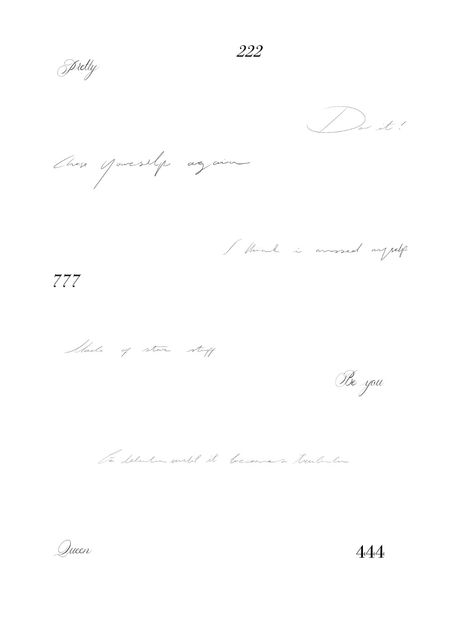 222
Pretty
Do it!
Chose yourself again
I think i missed myself
777
Made of star stuff
Be you
until it becomes
Queen
444